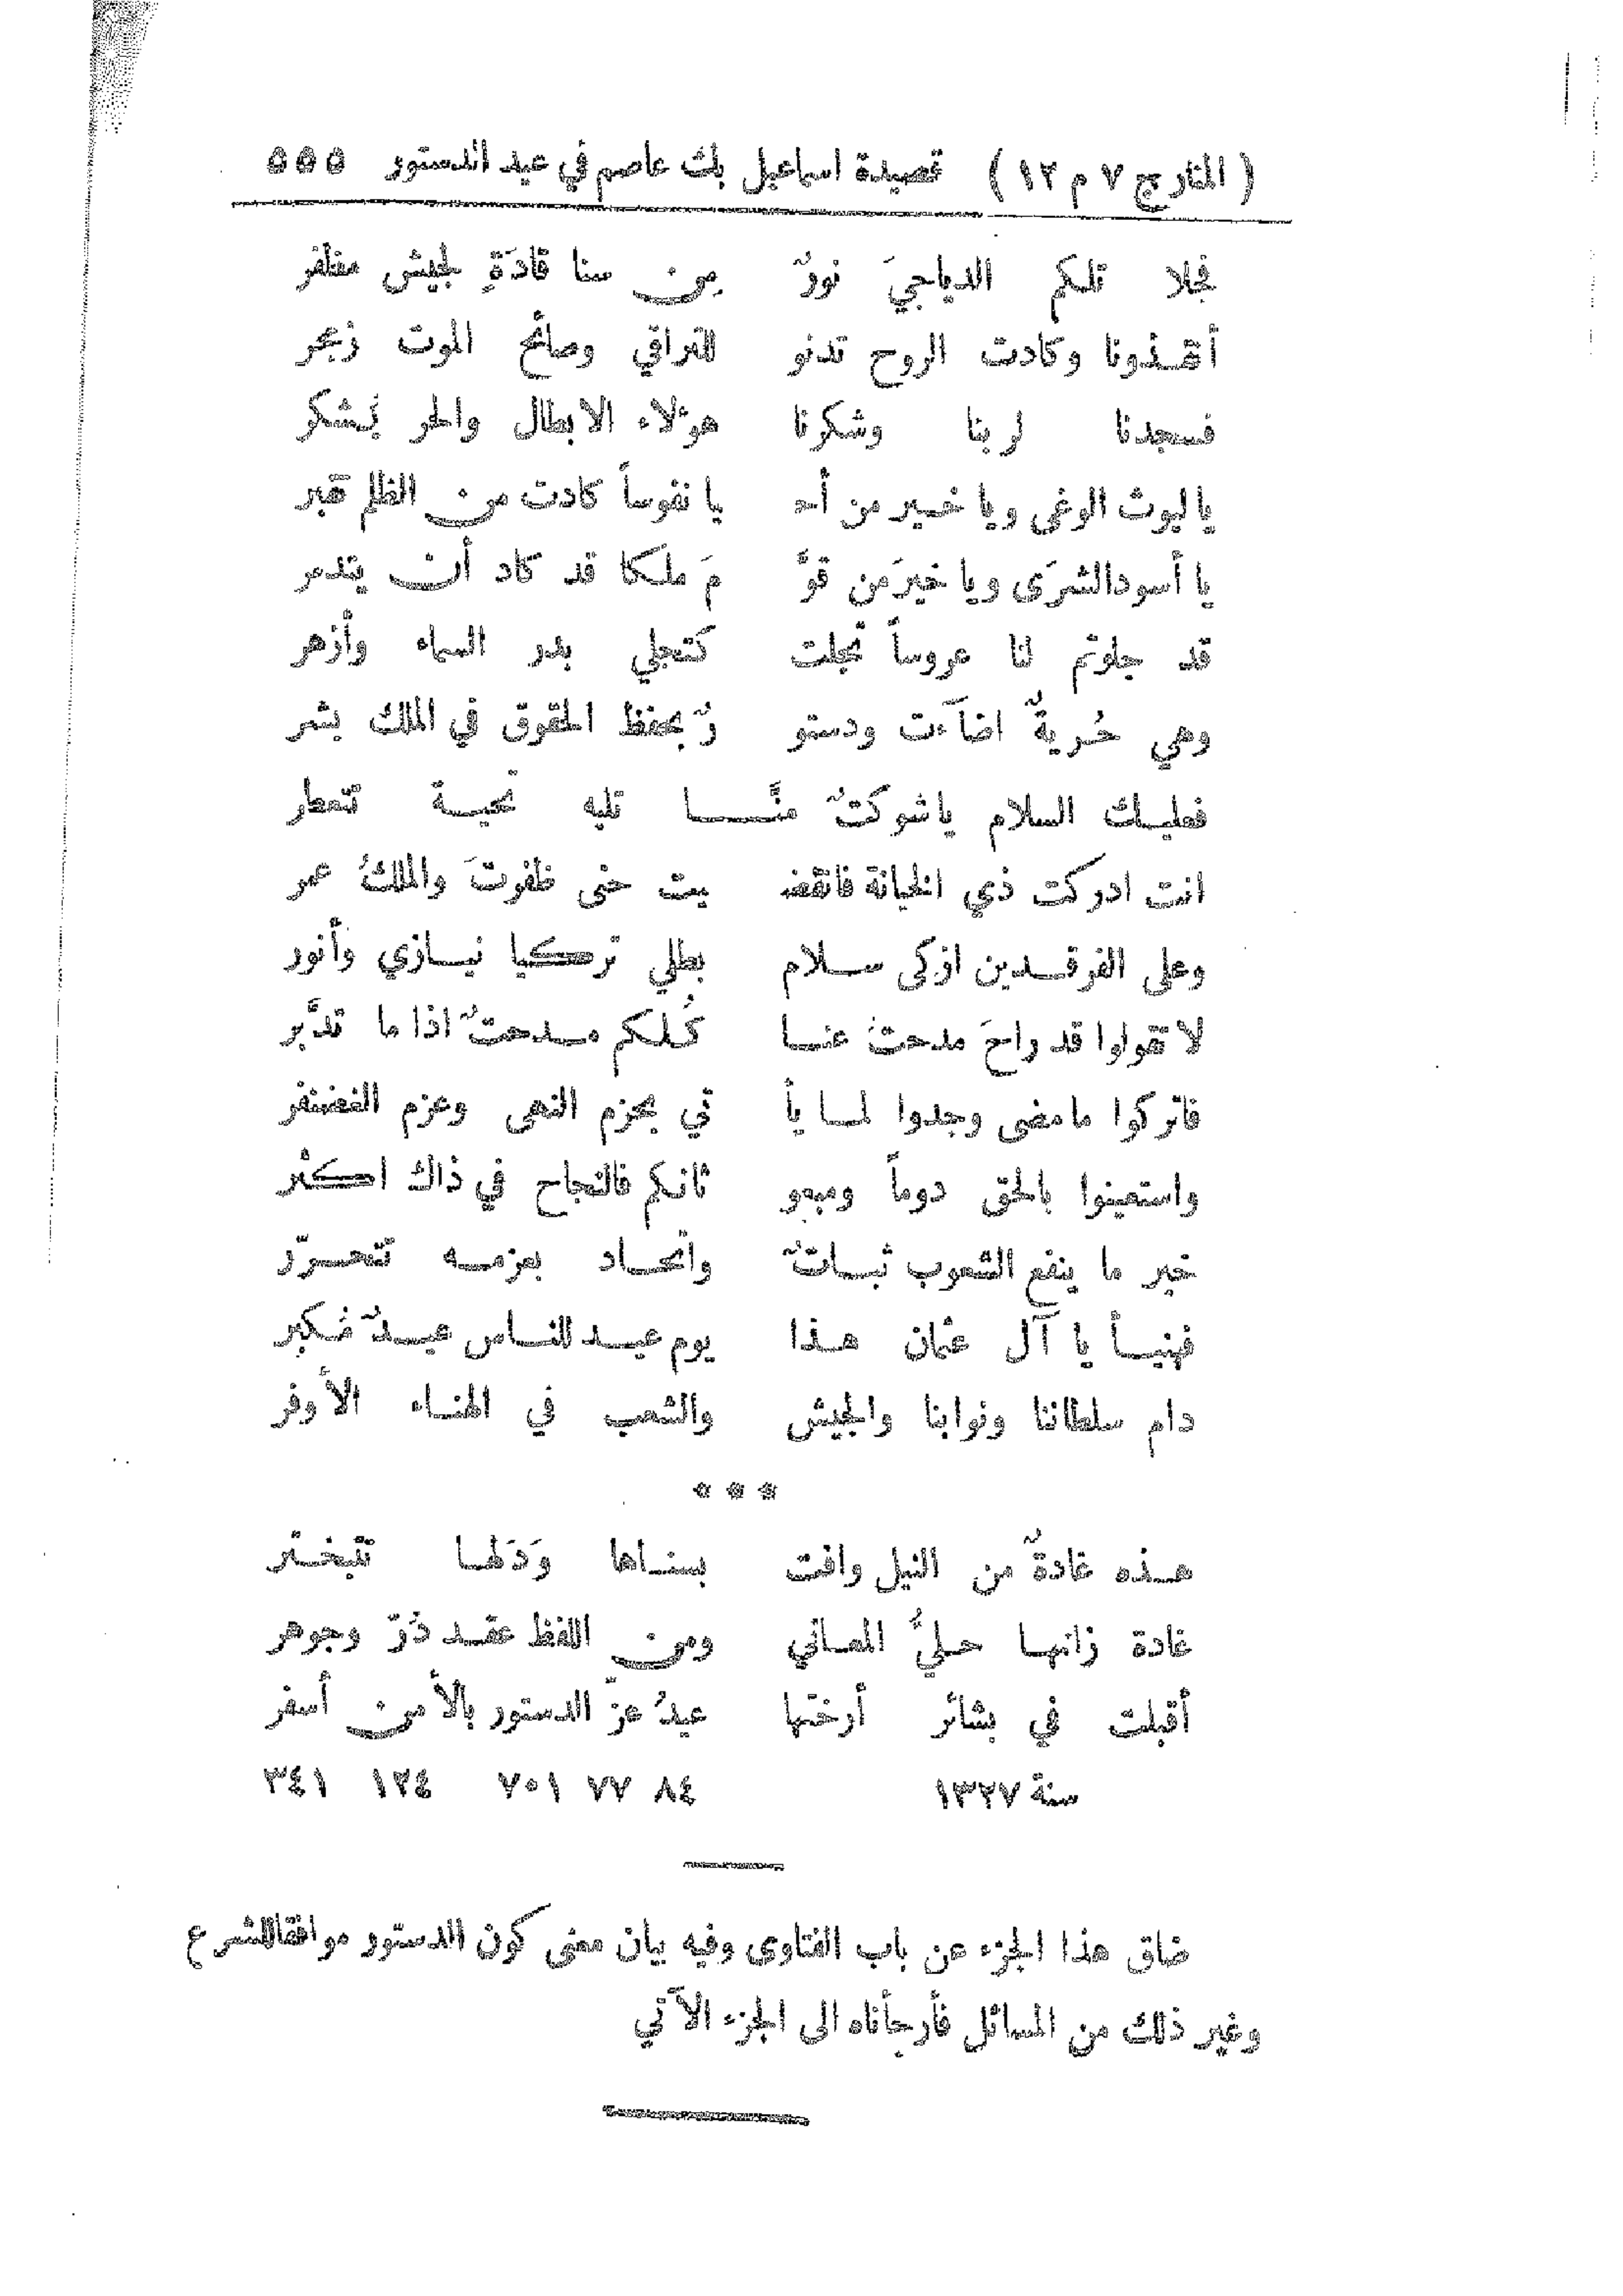 ( المنار ج ٧ م ١٢ ) قصيدة اسماعيل بك عاصم في عيد الدستور ٥٥٥
فجلا تلكم الدياجيَ نورٌ من سنا قادَةٍ لجيش مظفر
أنقذونا وكادت الروح تدنو للتراقي وصائح الموت زمجر
فسجدنا لربنا وشكرنا هؤلاء الابطال والحر يُشكر
يا ليوث الوغى ويا خير من أحـ يا نفوساً كادت من الظلم تقبر
يا أسود الشرَى ويا خيرَ من قوَّ مَ ملكا قد كاد أن يتدمر
قد جلوتم لنا عروساً تجلت كتجلي بدر السماء وأزهر
وهي حُريةٌ اضآءت ودستو رٌ بحفظ الحقوق في الملك بشر
فعليك السلام يا شوكتٌ منَّا تليه تحية تتعطر
انت ادركت ذي الخيانة فانقضـ يت حتى ظفرتَ والملكُ عمر
وعلى الفرقدين ازكى سلام بطلي تركيا نيازي وأنور
لا تقولوا قد راحَ مدحتُ عنا كُلكم مدحتٌ اذا ما تدَّبر
فاتركوا ما مضى وجدوا لما يأ تي بحزم النهى وعزم الغضنفر
واستعينوا بالحق دوماً ومبعو ثانكم فالنجاح في ذاك اكثر
خير ما ينفع الشعوب ثباتٌ واتحاد بعزمه تتحرّر
فهنيأ يا آل عثمان هذا يوم عيد للناس عيدٌ مُكبر
دام سلطاننا ونوابنا والجيش والشعب في الهناء الأوفر
* * *
هذه غادةٌ من النيل وافت بسناها وَدَلها تتبختر
غادة زانها حليُّ المعاني ومن اللفظ عقد دُرّ وجوهر
أقبلت في بشائر أرختها عيدُ عزّ الدستور بالأمن أسفر
سنة ١٣٢٧ ٨٤ ٧٧ ٧٠١ ١٢٤ ٣٤١
ضاق هذا الجزء عن باب الفتاوى وفيه بيان معنى كون الدستور موافقا للشرع
وغير ذلك من المسائل فأرجأناه الى الجزء الآتي